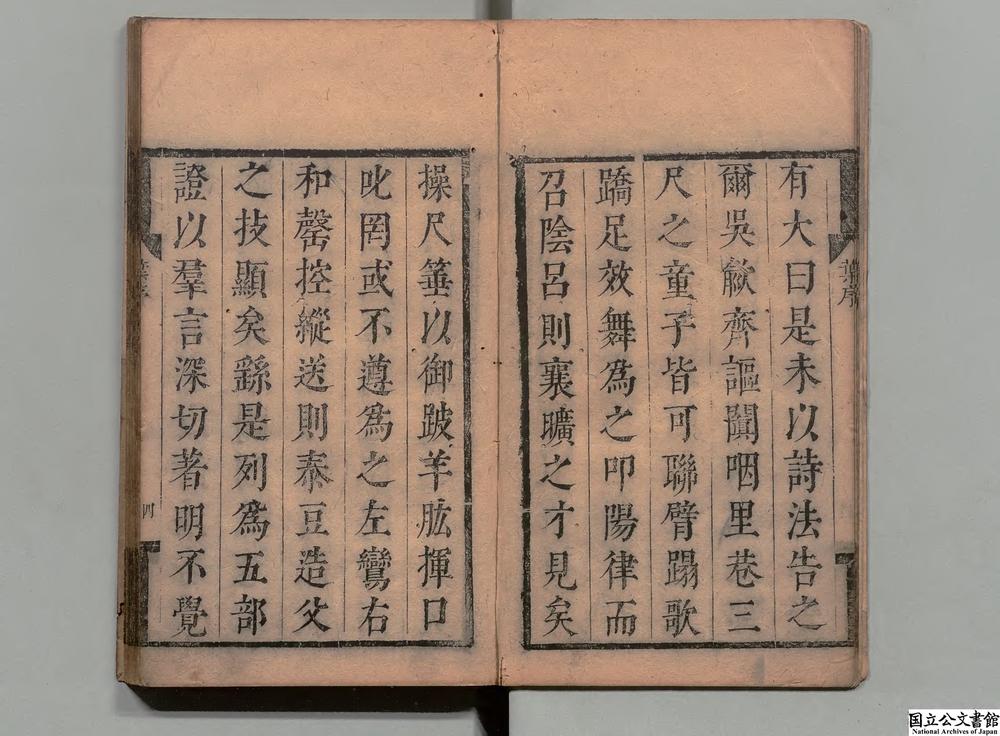 有大曰是未以詩法告之
爾吳歈齊謳闐咽里巷三
尺之童子皆可聯臂蹋歌
蹻足效舞為之叩陽律而
召陰呂則襄曠之才見矣
操尺箠以御跛羊肱揮口
叱罔或不遵為之左鸞右
和罄控縱送則泰豆造父
之技顯矣繇是列為五部
證以羣言深切著明不覺
四
国立公文書館
National Archives of Japan